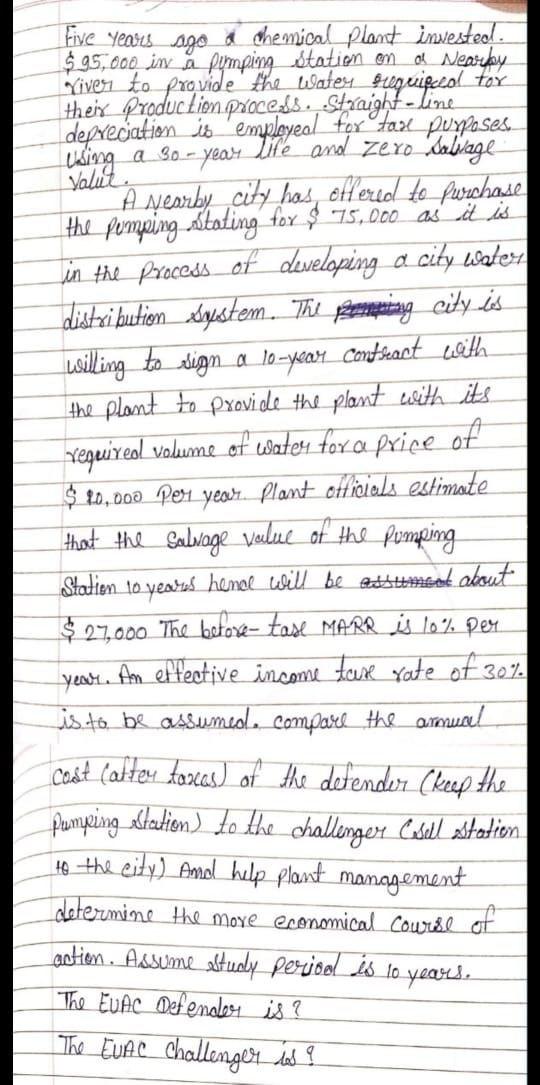 Five years ago a chemical plant invested.
$ 95,000 in a pymping station on a Nearby
river to provide the water required for
their production process. Straight-line
depreciation is employeal for taxe purposes
using a 30-year life and zero salvage
Value.
A Nearby city has offered to purchase
the pumping stating for $ 75,000 as it is
in the process of developing a city water
distribution system. The city is
willing to sign a 10-year contract with
the plant to provide the plant with its
required volume of water for a price of
$ 10,000 per year. plant officials estimate
that the salvage value of the pumping
station 10 years hence will be about
$ 27,000 The before-taxe MARR is 10% per
year. An effective income taxe rate of 30%
is to be assumed. compare the annual
cost (after taxes) of the defender (keep the
pumping station) to the challenger (sell station
to the city) And help plant management
determine the more economical course of
action. Assume study period is 10 years.
The EUAC Defender is?
The EUAC Challenger is?